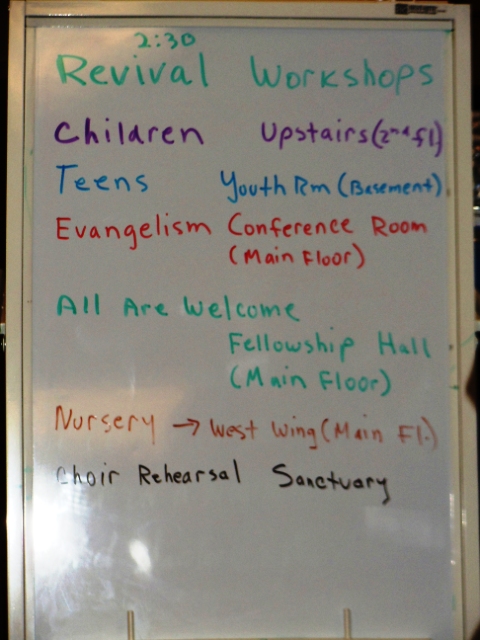 2:30
Revival Workshops
Children Upstairs (2nd fl)
Teens Youth Rm (Basement)
Evangelism Conference Room
(Main Floor)
All Are Welcome
Fellowship Hall
(Main Floor)
Nursery → West Wing (Main Fl.)
Choir Rehearsal Sanctuary